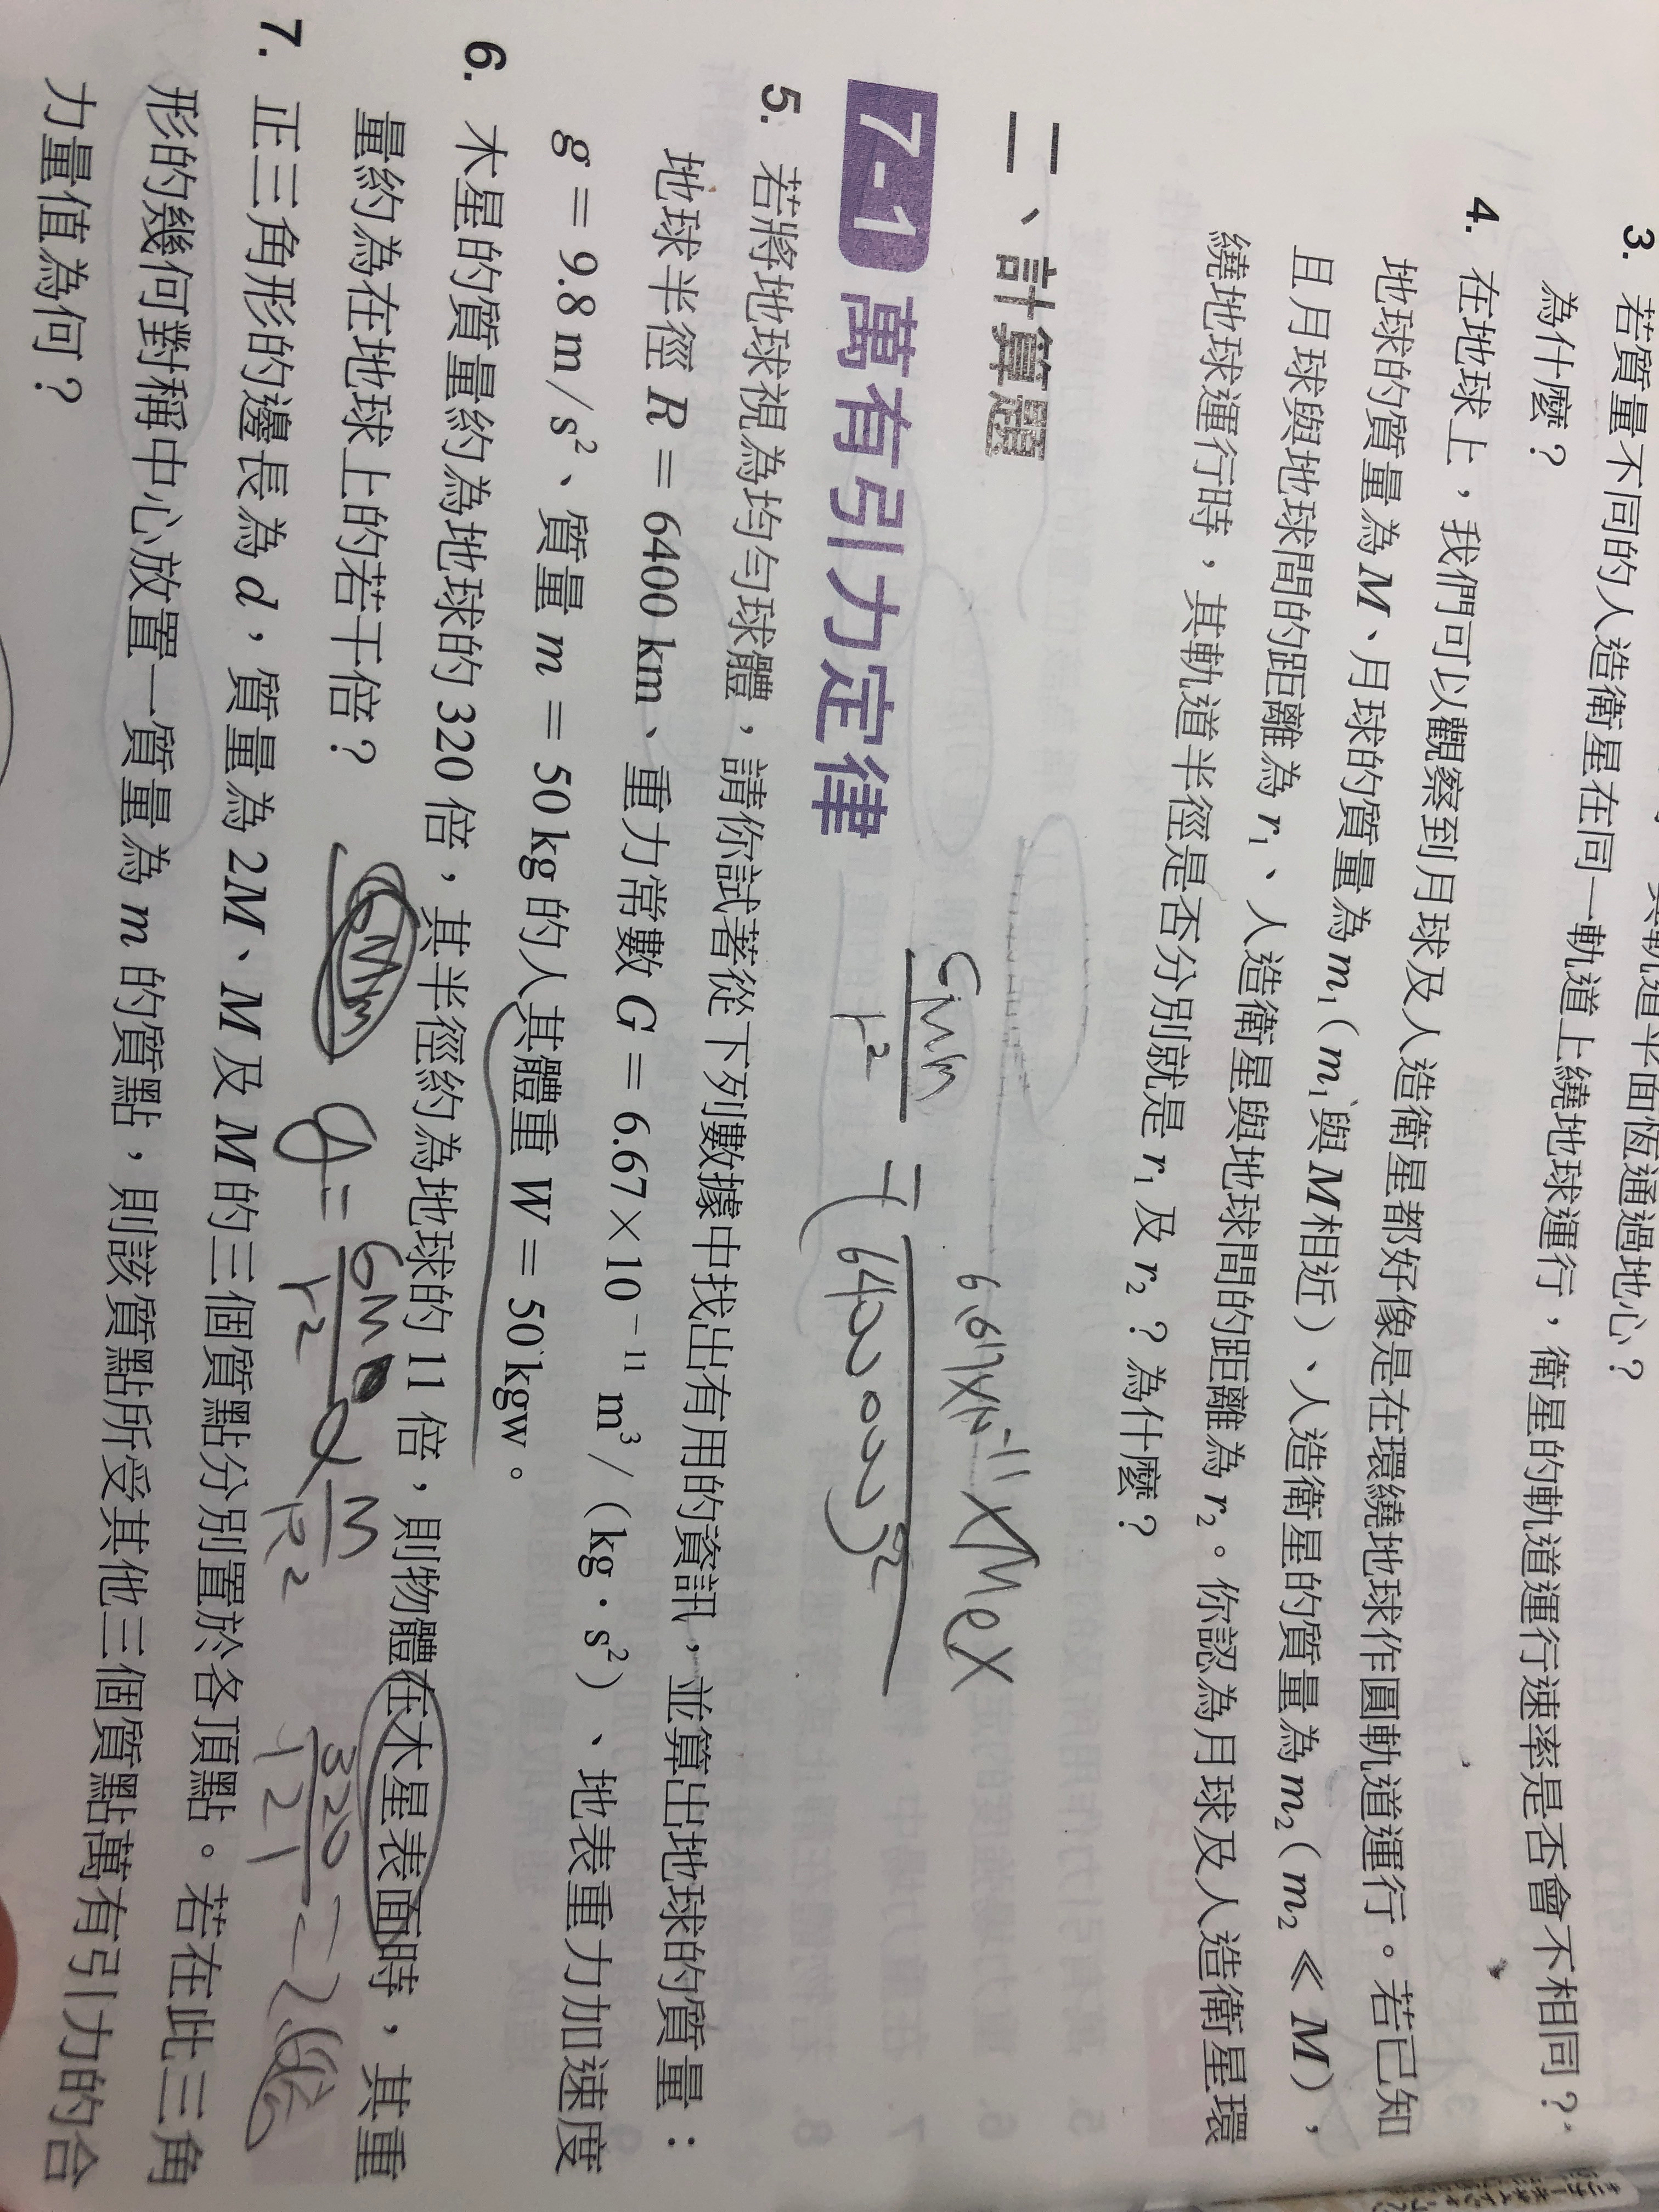 3. 若質量不同的人造衛星在同一軌道上繞地球運行，衛星的軌道運行速率是否會不相同？
為什麼？
4. 在地球上，我們可以觀察到月球及人造衛星都好像是在環繞地球作圓軌道運行。若已知
地球的質量為 M、月球的質量為 m₁（m₁與 M 相近）、人造衛星的質量為 m₂（m₂ ≪ M），
且月球與地球間的距離為 r₁、人造衛星與地球間的距離為 r₂。你認為月球及人造衛星環
繞地球運行時，其軌道半徑是否分別就是 r₁ 及 r₂？為什麼？
二、計算題
6.67×10⁻¹¹×Me×
GMm/r² = /(6400000)²
7-1 萬有引力定律
5. 若將地球視為均勻球體，請你試著從下列數據中找出有用的資訊，並算出地球的質量：
地球半徑 R = 6400 km、重力常數 G = 6.67×10⁻¹¹ m³/（kg·s²）、地表重力加速度
g = 9.8 m/s²、質量 m = 50 kg 的人其體重 W = 50 kgw。
6. 木星的質量約為地球的 320 倍，其半徑約為地球的 11 倍，則物體在木星表面時，其重
量約為在地球上的若干倍？
g = GM/r² ∝ M/R² 320/121
7. 正三角形的邊長為 d，質量為 2M、M 及 M 的三個質點分別置於各頂點。若在此三角
形的幾何對稱中心放置一質量為 m 的質點，則該質點所受其他三個質點萬有引力的合
力量值為何？